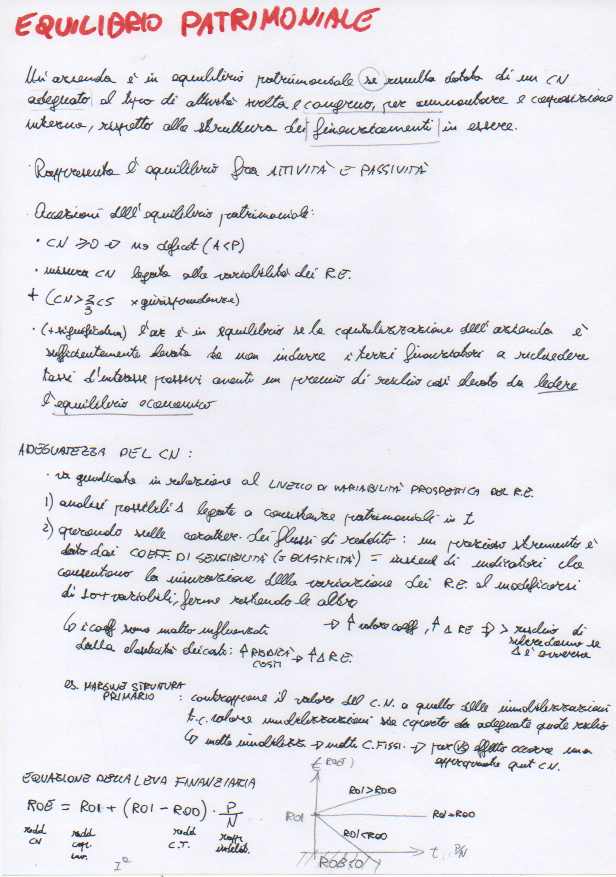 EQUILIBRIO PATRIMONIALE
Un'azienda è in equilibrio patrimoniale se risulta dotata di un CN
adeguato al tipo di attività svolta e congruo, per ammontare e composizione
interna, rispetto alla struttura dei finanziamenti in essere.
· Rappresenta l'equilibrio fra ATTIVITÀ E PASSIVITÀ
· Accezioni dell'equilibrio patrimoniale:
• CN ≥ 0 → no deficit (A<P)
• misura CN legata alla variabilità dei R.E.
+ (CN > 2/3 CS x giurisprudenza)
• (+ significativa) l'az è in equilibrio se la capitalizzazione dell'azienda è
sufficientemente elevata da non indurre i terzi finanziatori a richiedere
tassi d'interesse passivi aventi un premio di rischio così elevato da ledere
l'equilibrio economico
ADEGUATEZZA DEL CN:
· va giudicata in relazione al LIVELLO DI VARIABILITÀ PROSPETTICA DEL R.E.
1) analisi possibili Δ legate a consistenze patrimoniali in t
2) operando sulle caratter. dei flussi di reddito: un prezioso strumento è
dato dai COEFF DI SENSIBILITÀ (o ELASTICITÀ) = insieme di indicatori che
consentono la misurazione della variazione dei R.E. al modificarsi
di 1 o + variabili, ferme restando le altre
↳ i coeff sono molto influenzati → ↑ valore coeff, ↑ Δ RE → > rischio di
dalla elasticità dei costi: ↑ RIGIDITÀ COSTI → ↑ Δ R.E. se Δ è avversa
es. MARGINE STRUTTURA
PRIMARIO : contrappone il valore del C.N. a quello delle immobilizzazioni
t.c. valore immobilizzazioni sia coperto da adeguate quote
↳ molte immobilizz → molti C.FISSI → per effetto occorre una
quot CN.
EQUAZIONE DELLA LEVA FINANZIARIA
ROE = ROI + (ROI - ROD) · P/N
redd CN redd cap. inv. redd C.T. rapp indeb.
I°
(ROE)
ROI
ROI > ROD
ROI = ROD
ROI < ROD
ROE < 0
P/N